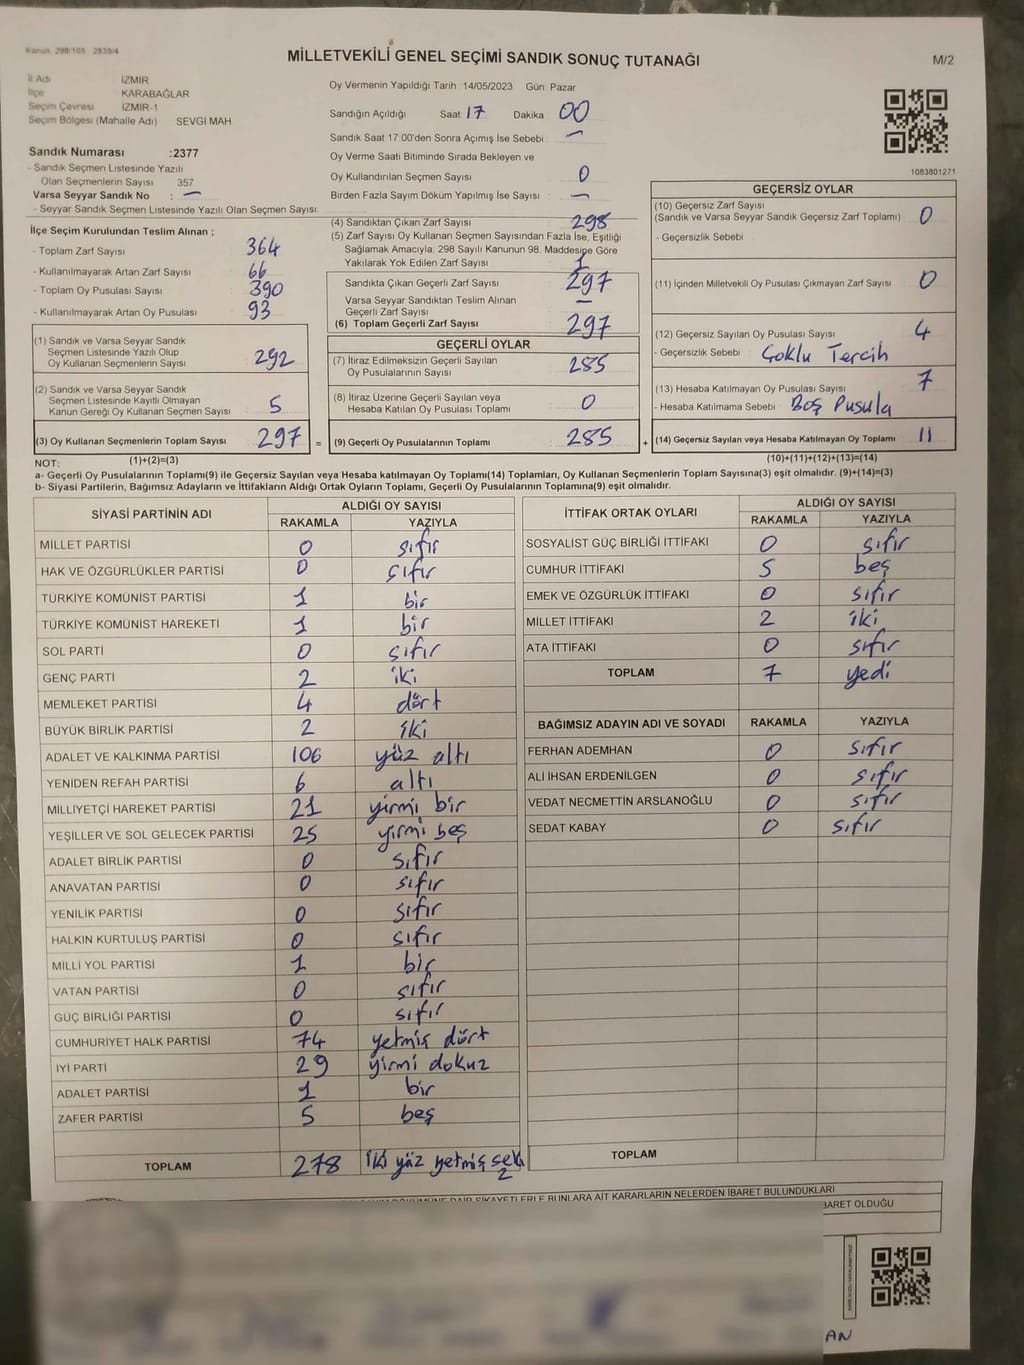 Kanun. 298/105 2839/4
MİLLETVEKİLİ GENEL SEÇİMİ SANDIK SONUÇ TUTANAĞI
M/2
İl Adı İZMİR
İlçe KARABAĞLAR
Seçim Çevresi İZMİR-1
Seçim Bölgesi (Mahalle Adı) SEVGİ MAH
Sandık Numarası :2377
- Sandık Seçmen Listesinde Yazılı
Olan Seçmenlerin Sayısı 357
Varsa Seyyar Sandık No : —
- Seyyar Sandık Seçmen Listesinde Yazılı Olan Seçmen Sayısı:
Oy Vermenin Yapıldığı Tarih 14/05/2023 Gün: Pazar
Sandığın Açıldığı Saat 17 Dakika 00
Sandık Saat 17:00'den Sonra Açımış İse Sebebi : —
Oy Verme Saati Bitiminde Sırada Bekleyen ve
Oy Kullandırılan Seçmen Sayısı : 0
Birden Fazla Sayım Döküm Yapılmış İse Sayısı : —
1083801271
İlçe Seçim Kurulundan Teslim Alınan ;
- Toplam Zarf Sayısı : 364
- Kullanılmayarak Artan Zarf Sayısı : 66
- Toplam Oy Pusulası Sayısı : 390
- Kullanılmayarak Artan Oy Pusulası : 93
(1) Sandık ve Varsa Seyyar Sandık
Seçmen Listesinde Yazılı Olup
Oy Kullanan Seçmenlerin Sayısı : 292
(2) Sandık ve Varsa Seyyar Sandık
Seçmen Listesinde Kayıtlı Olmayan
Kanun Gereği Oy Kullanan Seçmen Sayısı : 5
(3) Oy Kullanan Seçmenlerin Toplam Sayısı : 297 =
(1)+(2)=(3)
(4) Sandıktan Çıkan Zarf Sayısı : 298
(5) Zarf Sayısı Oy Kullanan Seçmen Sayısından Fazla İse, Eşitliği
Sağlamak Amacıyla, 298 Sayılı Kanunun 98. Maddesine Göre
Yakılarak Yok Edilen Zarf Sayısı : 1
Sandıkta Çıkan Geçerli Zarf Sayısı : 297
Varsa Seyyar Sandıktan Teslim Alınan
Geçerli Zarf Sayısı : —
(6) Toplam Geçerli Zarf Sayısı : 297
GEÇERLİ OYLAR
(7) İtiraz Edilmeksizin Geçerli Sayılan
Oy Pusulalarının Sayısı : 285
(8) İtiraz Üzerine Geçerli Sayılan veya
Hesaba Katılan Oy Pusulası Toplamı : 0
(9) Geçerli Oy Pusulalarının Toplamı : 285 +
GEÇERSİZ OYLAR
(10) Geçersiz Zarf Sayısı
(Sandık ve Varsa Seyyar Sandık Geçersiz Zarf Toplamı) : 0
- Geçersizlik Sebebi :
(11) İçinden Milletvekili Oy Pusulası Çıkmayan Zarf Sayısı : 0
(12) Geçersiz Sayılan Oy Pusulası Sayısı : 4
- Geçersizlik Sebebi : Çoklu Tercih
(13) Hesaba Katılmayan Oy Pusulası Sayısı : 7
- Hesaba Katılmama Sebebi : Boş Pusula
(14) Geçersiz Sayılan veya Hesaba Katılmayan Oy Toplamı : 11
(10)+(11)+(12)+(13)=(14)
NOT:
a- Geçerli Oy Pusulalarının Toplamı(9) ile Geçersiz Sayılan veya Hesaba katılmayan Oy Toplamı(14) Toplamları, Oy Kullanan Seçmenlerin Toplam Sayısına(3) eşit olmalıdır. (9)+(14)=(3)
b- Siyasi Partilerin, Bağımsız Adayların ve İttifakların Aldığı Ortak Oyların Toplamı, Geçerli Oy Pusulalarının Toplamına(9) eşit olmalıdır.
SİYASİ PARTİNİN ADI ALDIĞI OY SAYISI
RAKAMLA YAZIYLA
MİLLET PARTİSİ 0 sıfır
HAK VE ÖZGÜRLÜKLER PARTİSİ 0 sıfır
TÜRKİYE KOMÜNİST PARTİSİ 1 bir
TÜRKİYE KOMÜNİST HAREKETİ 1 bir
SOL PARTİ 0 sıfır
GENÇ PARTİ 2 iki
MEMLEKET PARTİSİ 4 dört
BÜYÜK BİRLİK PARTİSİ 2 iki
ADALET VE KALKINMA PARTİSİ 106 yüz altı
YENİDEN REFAH PARTİSİ 6 altı
MİLLİYETÇİ HAREKET PARTİSİ 21 yirmi bir
YEŞİLLER VE SOL GELECEK PARTİSİ 25 yirmi beş
ADALET BİRLİK PARTİSİ 0 sıfır
ANAVATAN PARTİSİ 0 sıfır
YENİLİK PARTİSİ 0 sıfır
HALKIN KURTULUŞ PARTİSİ 0 sıfır
MİLLİ YOL PARTİSİ 1 bir
VATAN PARTİSİ 0 sıfır
GÜÇ BİRLİĞİ PARTİSİ 0 sıfır
CUMHURİYET HALK PARTİSİ 74 yetmiş dört
İYİ PARTİ 29 yirmi dokuz
ADALET PARTİSİ 1 bir
ZAFER PARTİSİ 5 beş
TOPLAM 278 iki yüz yetmiş sekiz
İTTİFAK ORTAK OYLARI ALDIĞI OY SAYISI
RAKAMLA YAZIYLA
SOSYALİST GÜÇ BİRLİĞİ İTTİFAKI 0 sıfır
CUMHUR İTTİFAKI 5 beş
EMEK VE ÖZGÜRLÜK İTTİFAKI 0 sıfır
MİLLET İTTİFAKI 2 iki
ATA İTTİFAKI 0 sıfır
TOPLAM 7 yedi
BAĞIMSIZ ADAYIN ADI VE SOYADI RAKAMLA YAZIYLA
FERHAN ADEMHAN 0 sıfır
ALİ İHSAN ERDENİLGEN 0 sıfır
VEDAT NECMETTİN ARSLANOĞLU 0 sıfır
SEDAT KABAY 0 sıfır
TOPLAM
DÖKÜMÜNE DAİR ŞİKAYETLERLE BUNLARA AİT KARARLARIN NELERDEN İBARET BULUNDUKLARI
İBARET OLDUĞU
AN